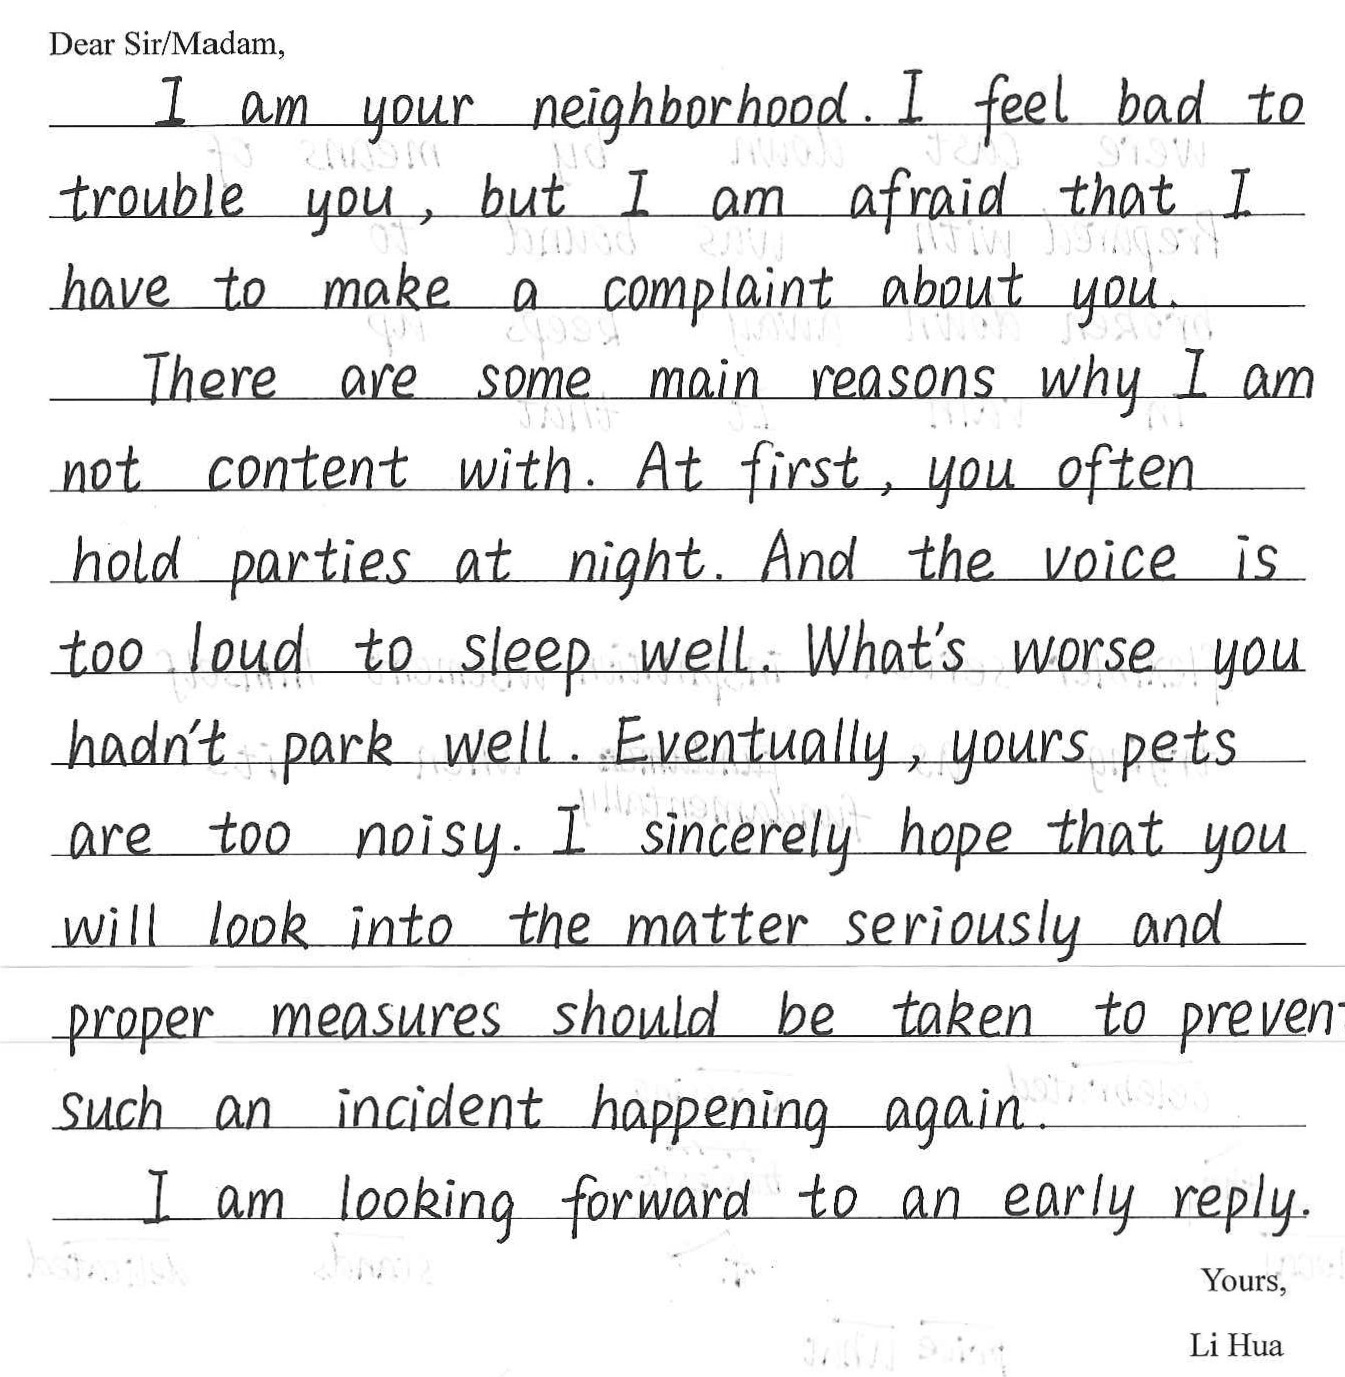 Dear Sir/Madam,
I am your neighborhood. I feel bad to
trouble you, but I am afraid that I
have to make a complaint about you.
There are some main reasons why I am
not content with. At first, you often
hold parties at night. And the voice is
too loud to sleep well. What's worse you
hadn't park well. Eventually, yours pets
are too noisy. I sincerely hope that you
will look into the matter seriously and
proper measures should be taken to prevent
such an incident happening again.
I am looking forward to an early reply.
Yours,
Li Hua